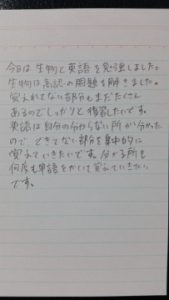 今日は生物と英語を勉強しました。
生物は暗記の問題を解きました。
覚えれてない部分もまだたくさん
あるのでしっかりと復習したいです。
英語は自分の分からない所が分かった
ので、できてない部分を集中的に
覚えていきたいです。分かる所も
何度も単語をかいて覚えていきたい
です。